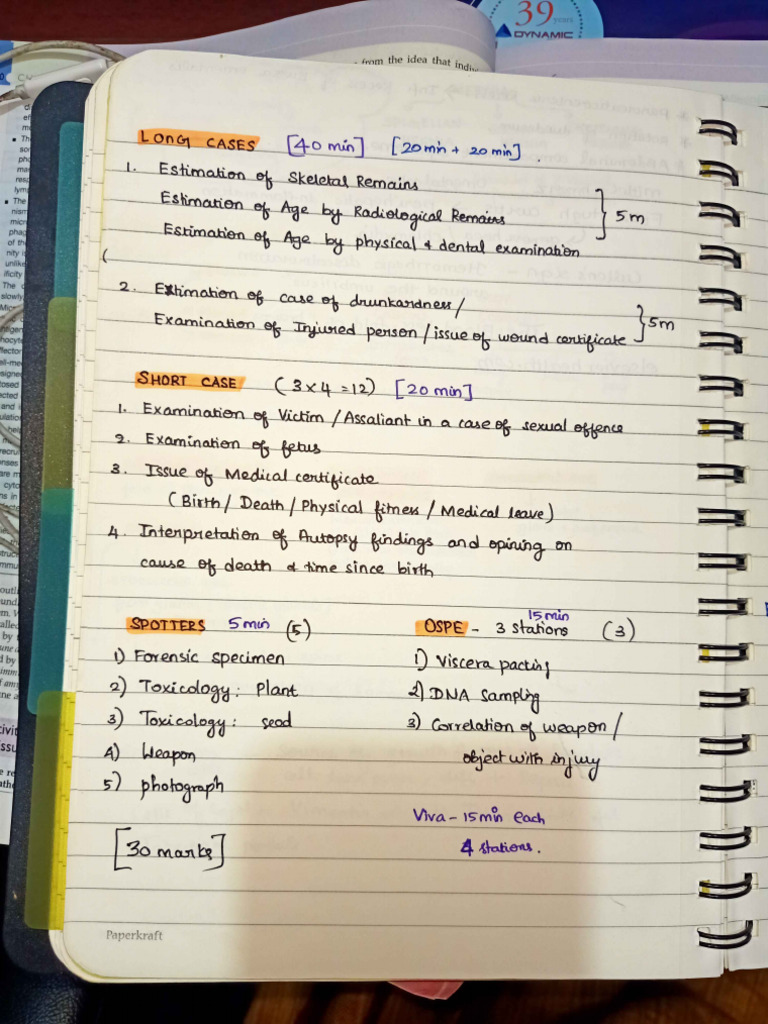 39 years
DYNAMIC
from the idea that indiv
LONG CASES [40 min] [20 min + 20 min].
1. Estimation of Skeletal Remains
Estimation of Age by Radiological Remains
Estimation of Age by physical & dental examination
} 5m
2. Extimation of case of drunkardness/
Examination of Injured person / issue of wound certificate
} 5m
SHORT CASE (3 x 4 = 12) [20 min]
1. Examination of Victim / Assaliant in a case of sexual offence
2. Examination of fetus
3. Issue of Medical certificate
(Birth / Death / Physical fitness / Medical leave)
4. Interpretation of Autopsy findings and opining on
cause of death & time since birth
SPOTTERS 5 min (5)
1) Forensic specimen
2) Toxicology: Plant
3) Toxicology: seed
4) Weapon
5) photograph
[30 marks]
OSPE - 3 stations 15 min (3)
1) Viscera packing
2) DNA Sampling
3) Correlation of weapon /
object with injury
Viva - 15 min each
4 stations.
Paperkraft